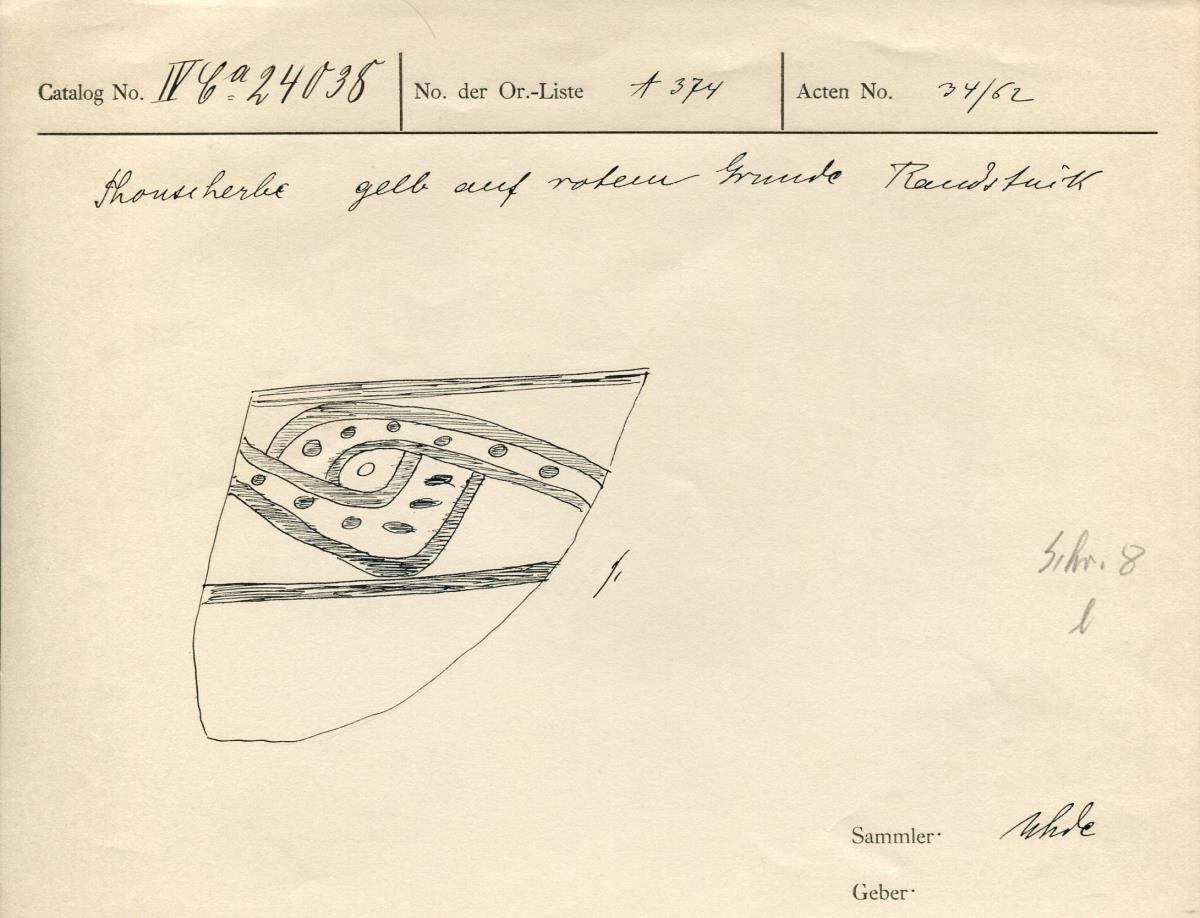 Catalog No. IV Ca 24038 No. der Or.-Liste A 374 Acten No. 34/62
Thonscherbe gelb auf rotem Grunde Randstück
1/1
Schr. 8
l
Sammler· Uhde
Geber·